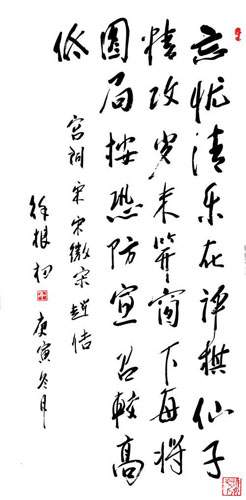 忘忧清乐在评棋仙子
精攻岁未笄窗下每将
圖局按恐防宣召较高
低
宫词 宋 宋徽宗赵佶
徐根初 庚寅冬月